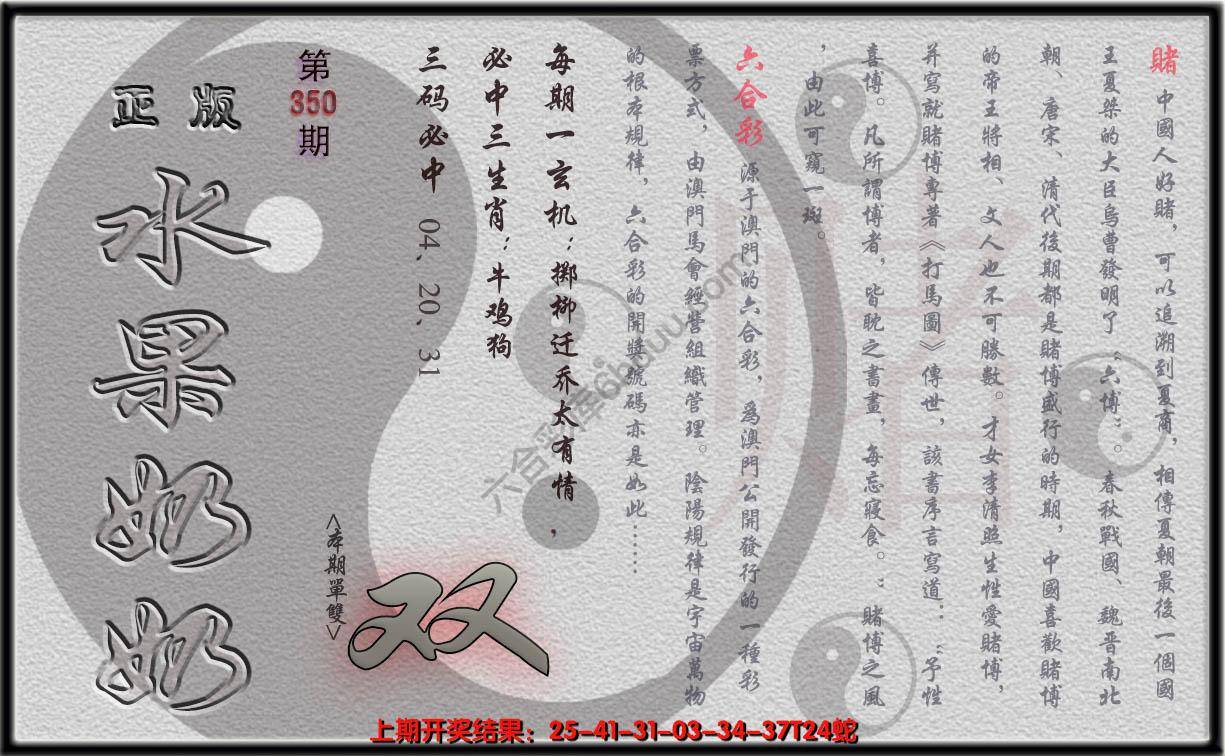 賭 中國人好賭，可以追溯到夏商，相傳夏朝最後一個國
王夏桀的大臣烏曹發明了“六博”。春秋戰國、魏晋南北
朝、唐宋、清代後期都是賭博盛行的時期，中國喜歡賭博
的帝王將相、文人也不可勝數。才女李清照生性愛賭博，
并寫就賭博專著《打馬圖》傳世，該書序言寫道：“予性
喜博。凡所謂博者，皆耽之書晝，每忘寢食。”賭博之風
，由此可窺一斑。
六合彩 源于澳門的六合彩，爲澳門公開發行的一種彩
票方式，由澳門馬會經營組織管理。陰陽規律是宇宙萬物
的根本規律，六合彩的開獎號碼亦是如此……
每期一玄机：掷柳迁乔太有情，
必中三生肖：牛鸡狗
三码必中 04、20、31
<本期單雙>
双
第
350
期
正版
水果奶奶
賭
六合彩库6huuu.com
上期开奖结果：25-41-31-03-34-37T24蛇